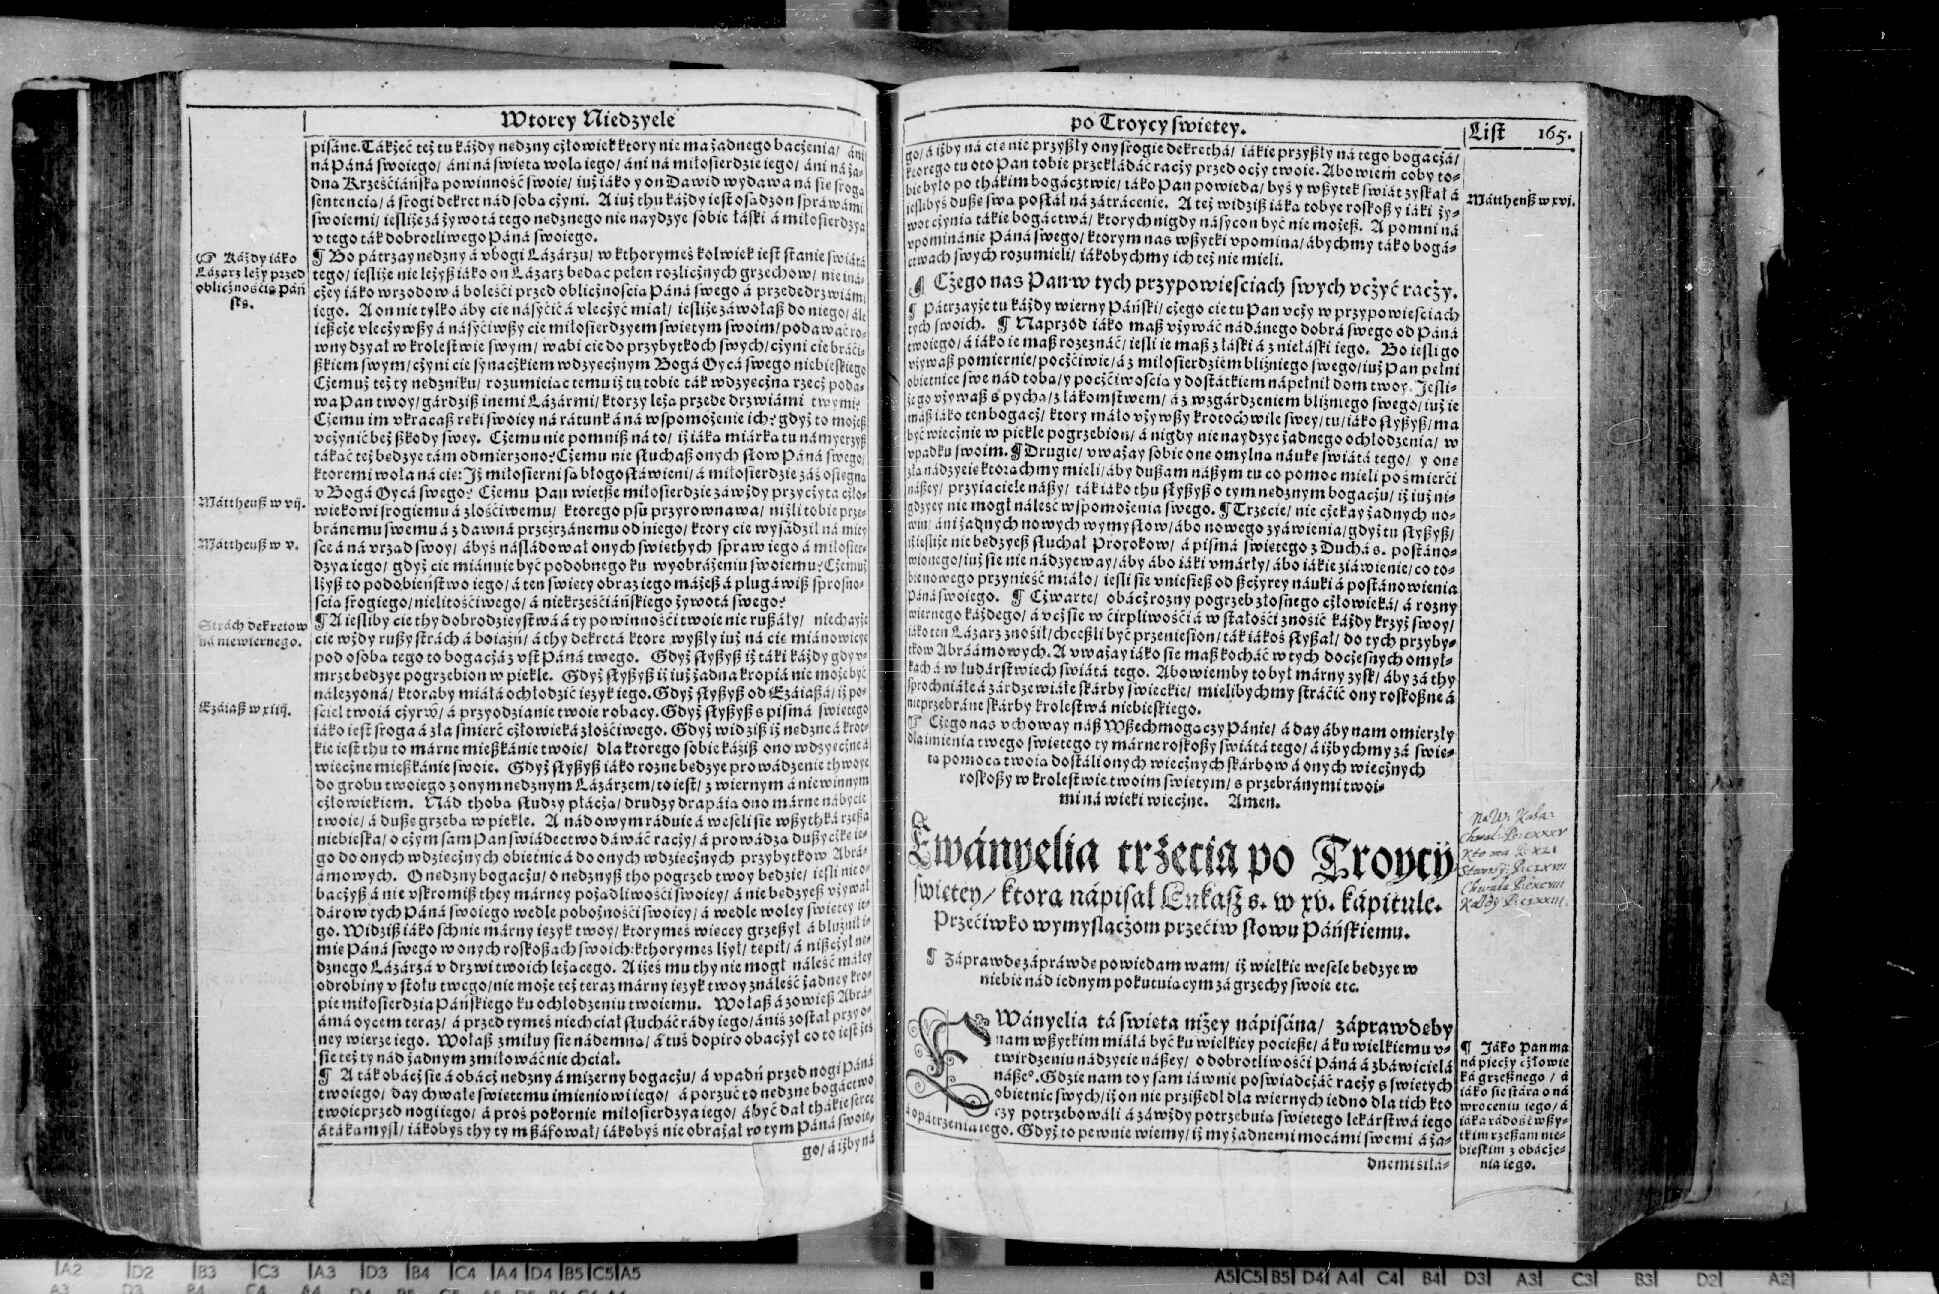 Wtorey Niedzyele
pisáne. Tákżeć też tu káżdy nędzny człowiek ktory nie ma żadnego baczenia/ áni
ná Páná swoiego/ áni ná święta wola iego/ áni ná miłosierdzie iego/ áni ná żá-
dna Krześćiáńska powinność swoię/ iuż iáko y on Dawid wydawa ná się sroga
sentencia/ á srogi dekret nád soba czyni. A iuż thu káżdy iest osądzon spráwámi
swoiemi/ iesliże zá żywotá tego nędznego nie naydzye sobie łáski á miłosierdzya
v tego ták dobrotliwego Páná swoiego.
¶ Bo pátrzay nędzny á vbogi Lázárzu/ w kthorymeś kolwiek iest stanie świátá
tego/ iesliże nie leżysz iáko on Lázarz bedac pełen rozlicznych grzechow/ nie iná-
czey iáko wrzodow á boleśći przed oblicznoscia Páná swego á przede drzwiámi
iego. A on nie tylko áby cię násyćić á vleczyć miał/ iesliże záwołasz do niego/ ále
ieszcze vleczywszy á násyćiwszy cię miłosierdzyem świętym swoim/ podawać ro-
wny dzyał w krolestwie swym/ wabi cię do przybytkoch swych/ czyni cię bráći-
szkiem swym/ czyni cię synaczkiem wdzyęcznym Bogá Oycá swego niebieskiego
Czemuż też ty nędzniku/ rozumieiac temu iż tu tobie ták wdzyęczna rzecz poda-
wa Pan twoy/ gárdzisz inemi Lázármi/ ktorzy leża przede drzwiámi twymi?
Czemu im vkracasz ręki swoiey ná rátunk á ná wspomożenie ich? gdyż to możesz
vczynić bez szkody swey. Czemu nie pomnisz ná to/ iż iáka miárka tu námyerzysz
táká ć też będzye tám odmierzono? Czemu nie słuchasz onych słow Páná swego/
ktoremi woła ná cię: Iż miłosierni sa błogosłáwieni/ á miłosierdzie záś osięgna
v Bogá Oycá swego? Czemu Pan więtsze miłosierdzie záwżdy przyczyta czło-
wiekowi srogiemu á złośćiwemu/ ktorego psu przyrownawa/ niżli tobie prze-
bránemu swemu á z dawná przeźrzánemu od niego/ ktory cię wysádził ná miey
sce á ná vrzad swoy/ ábyś násládował onych świethych spraw iego á miłosier-
dzya iego/ gdyż cię miánuie być podobnego ku wyobráżeniu swoiemu? Czemuż
lżysz to podobieństwo iego/ á ten święty obraz iego mażesz á plugáwisz sprosno-
scia srogiego/ nielitośćiwego/ á niekrześćiáńskiego żywotá swego?
¶ A iesliby cię thy dobrodzieystwá á ty powinnośći twoie nie ruszáły/ niechayże
cię wżdy ruszy strách á boiaźń/ á thy dekretá ktore wyszły iuż ná cię miánowicye
pod osoba tego to bogaczá z vst Páná twego. Gdyż słyszysz iż táki káżdy gdy v-
mrze będzye pogrzebion w piekle. Gdyż słyszysz iż iuż żadna kropiá nie może być
nálezyoná/ ktoraby miáłá ochłodzić ięzyk iego. Gdyż słyszysz od Ezáiaszá/ iż po-
sciel twoiá czyrw̃/ á przyodzianie twoie robacy. Gdyż słyszysz s pismá świętego
iáko iest sroga á zła śmierć człowieká złośćiwego. Gdyż widzisz iż nędzne á krot-
kie iest thu to márne mieszkánie twoie/ dla ktorego sobie káżisz ono wdzyęczne á
wieczne mieszkánie swoie. Gdyż słyszysz iáko rozne będzye prowádzenie thwoye
do grobu twoiego z onym nędznym Lázárzem/ to iest/ z wiernym á niewinnym
człowiekiem. Nád thoba słudzy płáczą/ drudzy drápáia ono márne nábycie
twoie/ á duszę grzeba w piekle. A nád owym ráduie á weseli się wszythká rzesza
niebieska/ o czym sam Pan świádectwo dáwáć raczy/ á prowádza duszyczkę ie-
go do onych wdzięcznych obietnic á do onych wdzięcznych przybytkow Abrá-
ámowych. O nędzny bogaczu/ o nędznysz tho pogrzeb twoy będzie/ iesli nie o-
baczysz á nie vskromisz they márney pożadliwośći swoiey/ á nie będzyesz vżywał
dárow tych Páná swoiego wedle pobożnośći swoiey/ á wedle woley świętey ie-
go. Widzisz iáko schnie márny ięzyk twoy/ ktorymeś więcey grzeszył á bluźnił i-
mię Páná swego w onych roskoszach swoich: kthorymeś lżył/ tępił/ á niszczył nę-
dznego Lázárzá v drzwi twoich leżącego. A iżeś mu thy nie mogł náleść máley
odrobiny v stołu twego/ nie może też teraz márny ięzyk twoy ználeść żadney kro-
pie miłosierdzia Páńskiego ku ochłodzeniu twoiemu. Wołasz á zowiesz Abrá-
ámá oycem teraz/ á przed tymeś niechciał słucháć rády iego/ ániś został przy o-
ney wierze iego. Wołasz zmiłuy się nádemna/ á tuś dopiro obaczył co to iest żeś
się też ty nád żadnym zmiłowáć nie chciał.
¶ A ták obácz się á obácz nędzny á mizerny bogaczu/ á vpadń przed nogi Páná
twoiego/ day chwałę świętemu imieniowi iego/ á porzuć to nędzne bogáctwo
twoie przed nogi iego/ á proś pokornie miłosierdzya iego/ ábyć dał thákie serce
á táka myśl/ iákobyś thy tym száfował/ iákobyś nie obrażał w tym Páná swoie-
go/ á iżby ná
☞ Káżdy iáko
Lázarz leży przed
oblicznością Páń
ską.
Máttheusz w vij.
Máttheusz w v.
Strách dekretow
ná niewiernego.
Ezáiasz w xiiij.
po Troycy swiętey.
List 165.
go/ á iżby ná cię nie przyszły ony srogie dekrethá/ iákie przyszły ná tego bogaczá/
ktorego tu oto Pan tobie przekłádáć raczy przed oczy twoie. Abowiem coby to-
bie było po thákim bogacztwie/ iáko Pan powieda/ byś y wszytek świát zyskał á
iesliżbyś duszę swą posłał ná zátrácenie. A też widzisz iáka tobye roskosz y iáki ży-
wot czynia tákie bogáctwá/ ktorych nigdy násycon być nie możesz. A pomni ná
vpominánie Páná swego/ ktorym nas wszytki vpomina/ ábychmy táko bogá-
ctwach swych rozumieli/ iákobychmy ich też nie mieli.
¶ Czego nas Pan w tych przypowiesciach swych vczyć raczy.
¶ Pátrzayże tu káżdy wierny Páński/ czego cię tu Pan vczy w przypowieściach
tych swoich. ¶ Naprzód iáko masz vżywáć nádánego dobrá swego od Páná
twoiego/ á iáko ie masz rozeznáć/ iesli ie masz z łáski á z niełáski iego. Bo iesli go
vżywasz pomiernie/ poczćiwie/ á z miłosierdziem bliźniego swego/ iuż Pan pełni
obietnice swe nád toba/ y poczćiwościa y dostátkiem nápełnił dom twoy. Iesli-
żego vżywasz s pycha/ z łákomstwem/ á z wzgárdzeniem bliźniego swego/ iuż ie
masz iáko ten bogacz/ ktory máło vżywszy krotochwile swey/ tu/ iáko słyszysz/ ma
być wiecznie w piekle pogrzebion/ á nigdy nie naydzye żadnego ochłodzenia/ w
vpadku swoim. ¶ Drugie/ vważay sobie onę omylna náukę świátá tego/ y onę
zła nádzyeię ktorachmy mieli/ áby duszam nászym tu co pomoc mieli po śmierći
nászey/ przyiaciele nászy/ ták iáko thu słyszysz o tym nędznym bogaczu/ iż iuż ni-
gdzyey nie mogł náleść wspomożenia swego. ¶ Trzecie/ nie czekay żadnych no-
win/ áni żadnych nowych wymysłow/ ábo nowego zyáwienia/ gdyż tu słyszysz/
iż iesliże nie będzyesz słuchał Prorokow/ á pismá świętego z Duchá s. postáno-
wionego/ iuż się nie nádzyeway/ áby ábo iáki vmárły/ ábo iákie ziáwienie/ co to-
bie nowego przynieść miáło/ iesli się vniesiesz od szczyrey náuki á postánowienia
Páná swoiego. ¶ Czwarte/ obácz rozny pogrzeb złosnego człowieká/ á rozny
wiernego káżdego/ á vcz się w ćirpliwośći á w státośći znośić káżdy krzyż swoy/
iáko ten Lázarz znośił/ chceszli być przeniesion/ ták iákoś słyszał/ do tych przyby-
tkow Abráámowych. A vważay iáko się masz kocháć w tych doczesnych omył-
kach á w łudárstwiech świátá tego. Abowiemby to był márny zysk/ áby zá thy
sprochniáłe á zárdzewiáłe skárby świeckie/ mielibychmy stráćić ony roskoszne á
nieprzebráne skárby krolestwá niebieskiego.
¶ Czego nas vchoway nász Wszechmogaczy Pánie/ á day áby nam omierzły
dla imienia twego świętego ty márne roskoszy świátá tego/ á iżbychmy zá świe-
ta pomoca twoia dostáli onych wiecznych skárbow á onych wiecznych
roskoszy w krolestwie twoim świętym/ s przebránymi twoi-
mi ná wieki wieczne. Amen.
Ewányelia trzecia po Troycy
swiętey/ ktorą nápisał Lukasz s. w xv. kápitule.
Przećiwko wymyslączom przećiw słowu Páńskiemu.
¶ Záprawdę záprawdę powiedam wam/ iż wielkie wesele będzye w
niebie nád iednym pokutuiącym zá grzechy swoie etc.
EWányelia tá święta niżey nápisána/ záprawdęby
nam wszytkim miáłá być ku wielkiey pociesze/ á ku wielkiemu v-
twirdzeniu nádzyeie nászey/ o dobrotliwośći Páná á zbáwicielá
násze°. Gdzie nam to y sam iáwnie poświadczáć raczy s swiętych
obietnic swych/ iż on nie przyszedł dla wiernych iedno dla tich kto
rzy potrzebowáli á záwżdy potrzebuia świętego lekárstwá iego
á opátrzenia iego. Gdyż to pewnie wiemy/ iż my żadnemi mocámi swemi á żá-
dnemi siłá-
Máttheusz w xvj.
¶ Iáko Pan ma
ná pieczy człowie
ká grzesznego / á
iáko się stára o ná
wroceniu iego/ á
iáka rádość wszy-
tkim rzeszam nie-
bieskim z obácze-
nia iego.